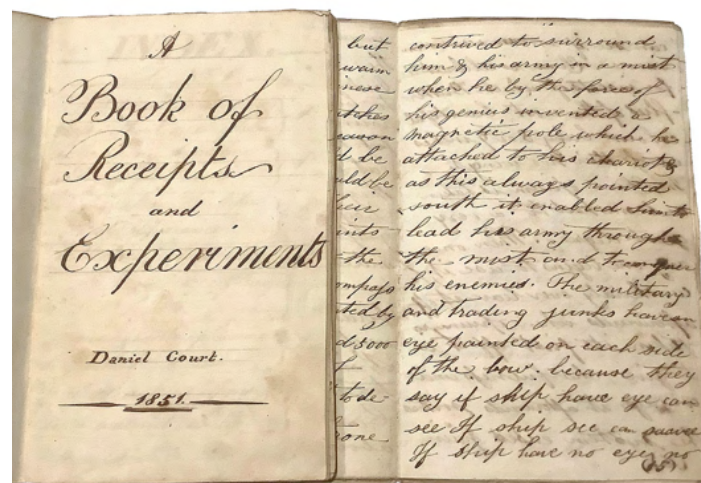 A
Book of
Receipts
and
Experiments
Daniel Court.
1851.
but
warm
nese
tches
eason
d be
uld be
heir
ints
the
ompass
ted by
d 5000
to de
none
contrived to surround
him & his army in a mist
when he by the force of
his genius invented a
magnetic pole which he
attached to his chariot &
as this always pointed
south it enabled him to
lead his army through
the mist and to conquer
his enemies. The military
and trading junks have an
eye painted on each side
of the bow. because they
say if ship have eye can
see If ship see can saavee
If ship have no eye no
(15)